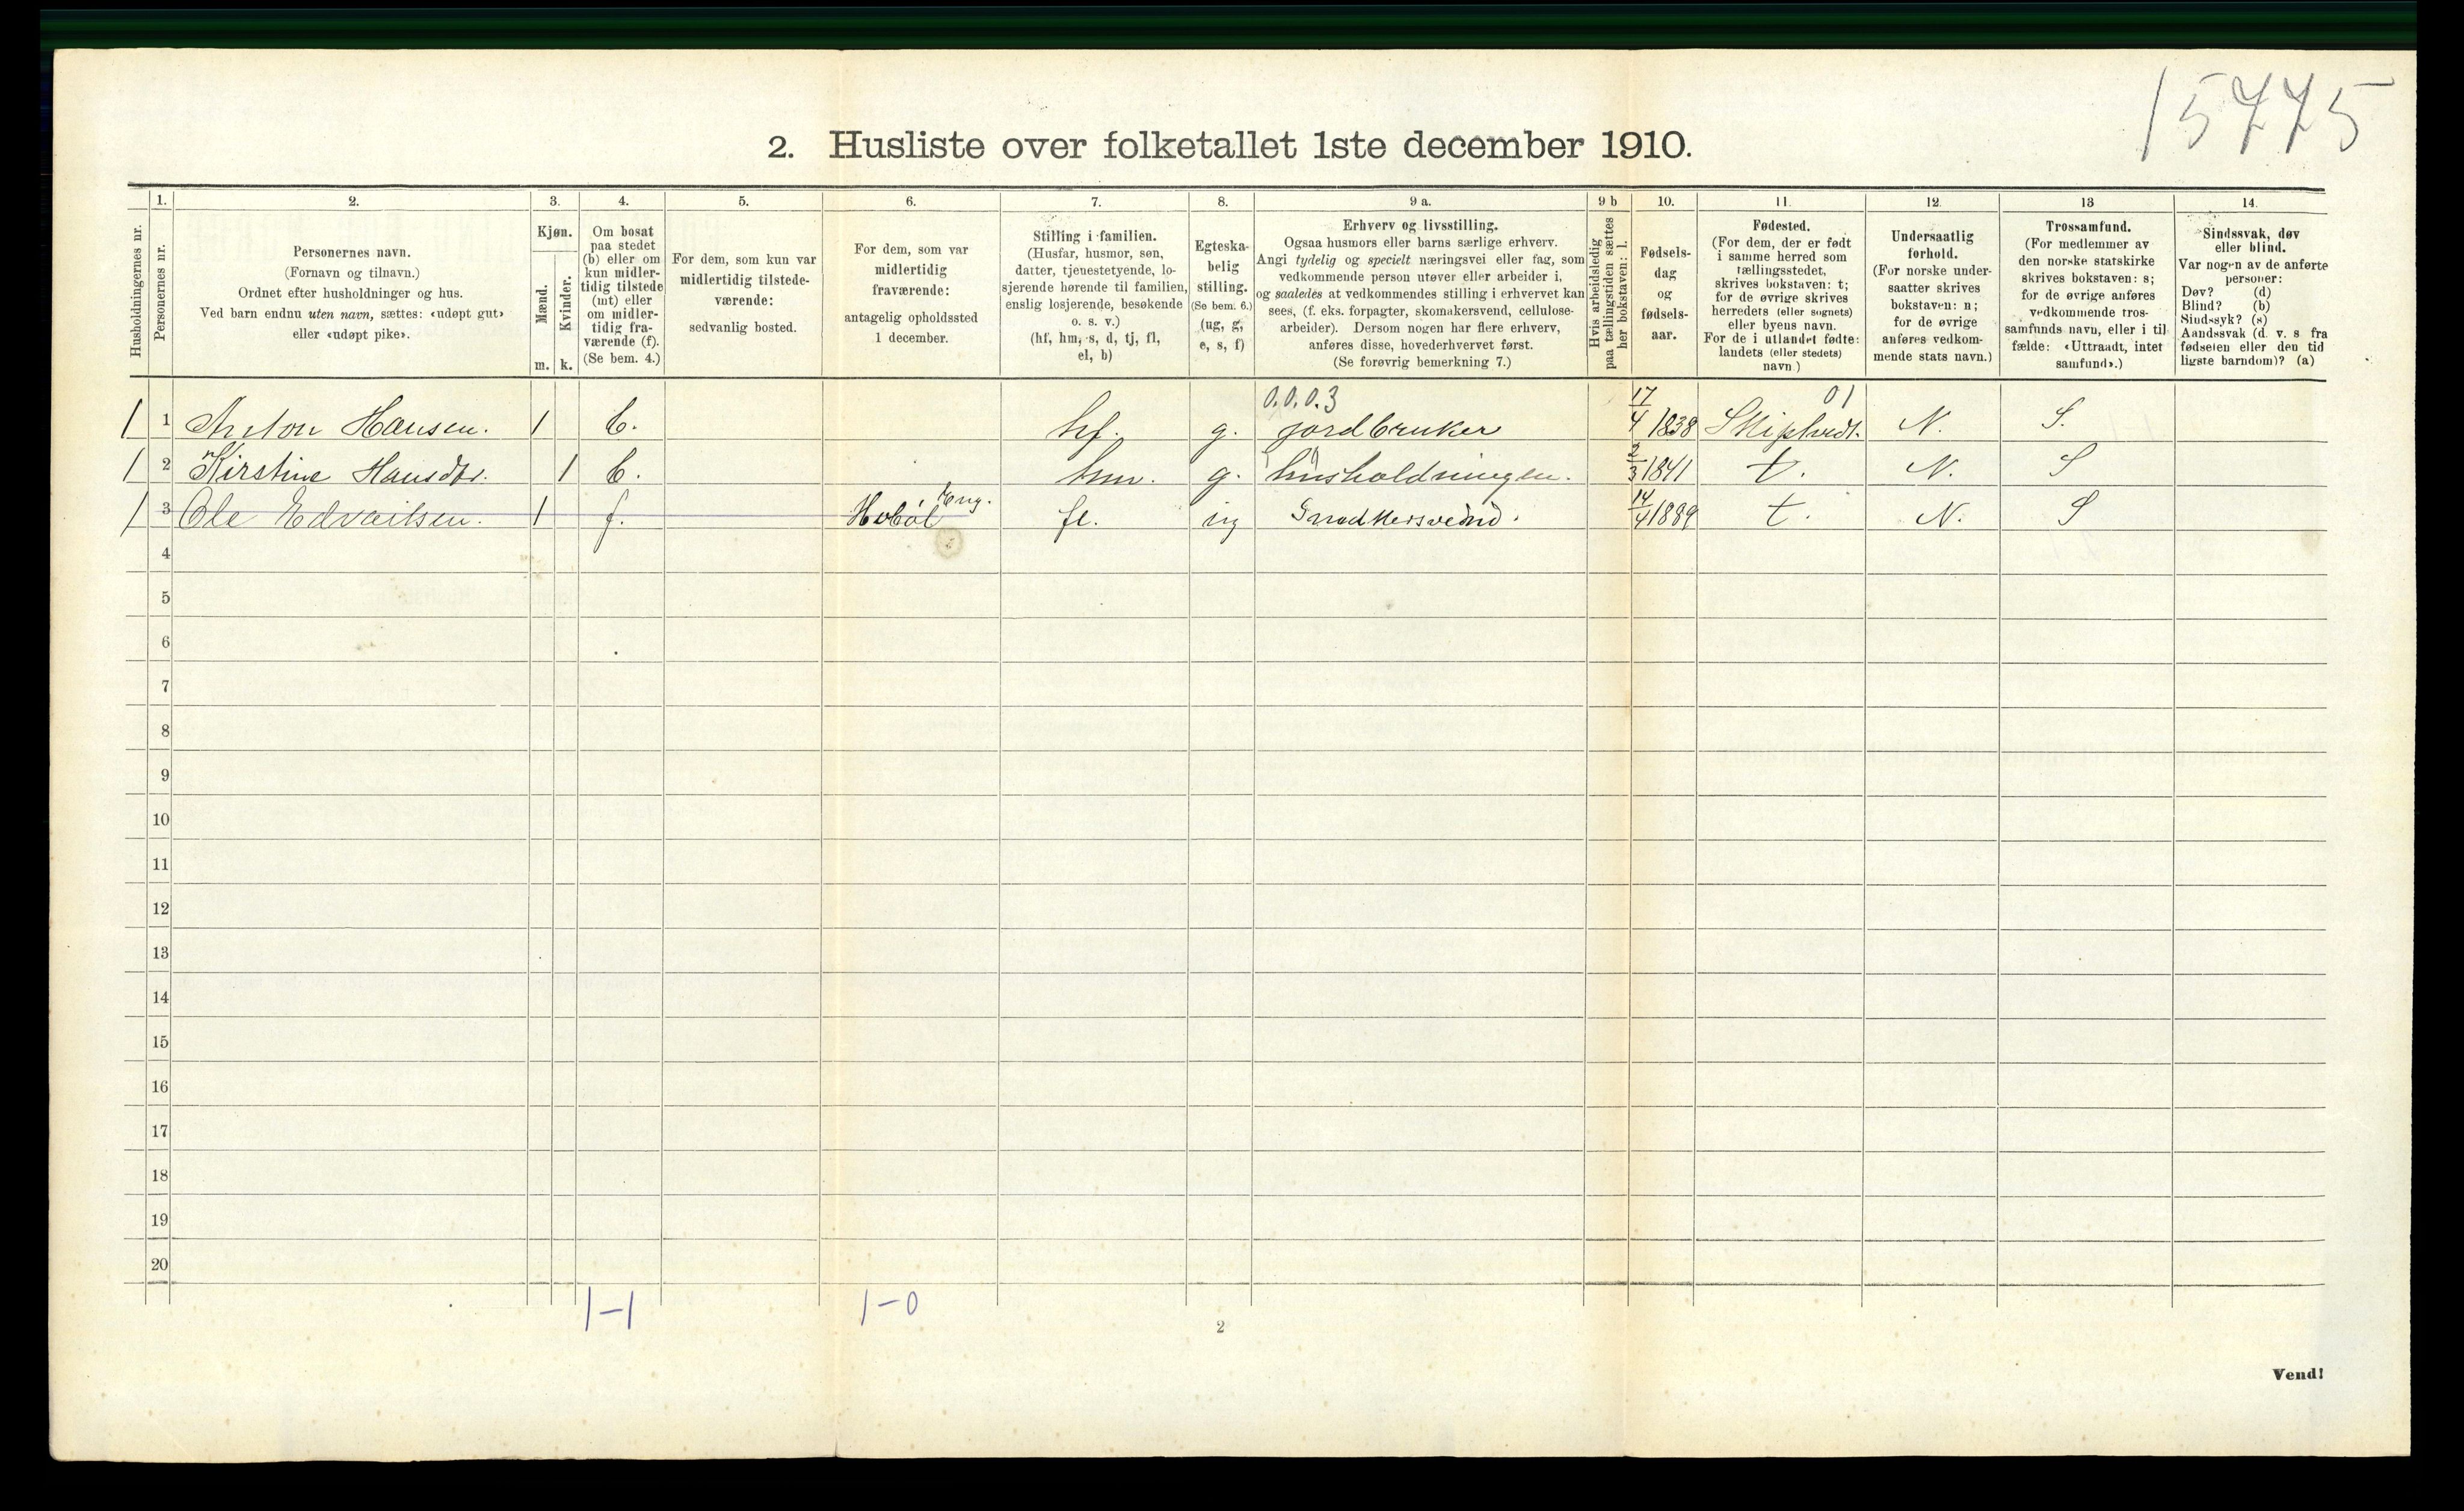 15775
2. Husliste over folketallet 1ste december 1910.
Husholdningernes nr.
1.
Personernes nr.
2.
Personernes navn.
(Fornavn og tilnavn.)
Ordnet efter husholdninger og hus.
Ved barn endnu uten navn, sættes: «udøpt gut»
eller «udøpt pike».
3.
Kjøn.
Mænd.
Kvinder.
m. k.
4.
Om bosat
paa stedet
(b) eller om
kun midler-
tidig tilstede
(mt) eller
om midler-
tidig fra-
værende (f).
(Se bem. 4.)
5.
For dem, som kun var
midlertidig tilstede-
værende:
sedvanlig bosted.
6.
For dem, som var
midlertidig
fraværende:
antagelig opholdssted
1 december.
7.
Stilling i familien.
(Husfar, husmor, søn,
datter, tjenestetyende, lo-
sjerende hørende til familien,
enslig losjerende, besøkende
o. s. v.)
(hf, hm, s, d, tj, fl,
el, b)
8.
Egteska-
belig
stilling.
(Se bem. 6.)
(ug, g,
e, s, f)
9 a.
Erhverv og livsstilling.
Ogsaa husmors eller barns særlige erhverv.
Angi tydelig og specielt næringsvei eller fag, som
vedkommende person utøver eller arbeider i,
og saaledes at vedkommendes stilling i erhvervet kan
sees, (f. eks. forpagter, skomakersvend, cellulose-
arbeider). Dersom nogen har flere erhverv,
anføres disse, hovederhvervet først.
(Se forøvrig bemerkning 7.)
9 b
Hvis arbeidsledig
paa tællingstiden sættes
her bokstaven: l.
10.
Fødsels-
dag
og
fødsels-
aar.
11.
Fødested.
(For dem, der er født
i samme herred som
tællingsstedet,
skrives bokstaven: t;
for de øvrige skrives
herredets (eller sognets)
eller byens navn.
For de i utlandet fødte:
landets (eller stedets)
navn.)
12.
Undersaatlig
forhold.
(For norske under-
saatter skrives
bokstaven: n;
for de øvrige
anføres vedkom-
mende stats navn.)
13
Trossamfund.
(For medlemmer av
den norske statskirke
skrives bokstaven: s;
for de øvrige anføres
vedkommende tros-
samfunds navn, eller i til
fælde: «Uttraadt, intet
samfund».)
14.
Sindssvak, døv
eller blind.
Var nogen av de anførte
personer:
Døv? (d)
Blind? (b)
Sindssyk? (s)
Aandssvak (d. v. s. fra
fødselen eller den tid
ligste barndom)? (a)
0.0.0.3 01
1 1 Anton Hansen. 1 b. hf. g. jordbruker 17/4 1838 Skiptvedt. N. S.
1 2 Kirstine Hansdtr. 1 b. hm. g. husholdningen. 2/3 1841 t. N. S
1 3 Ole 1 f. Hobøl Eng. fl. ug Snedkersvend. 14/4 1889 t. N. S
4
5
6
7
8
9
10
11
12
13
14
15
16
17
18
19
20
1-1 1-0
2
Vend!